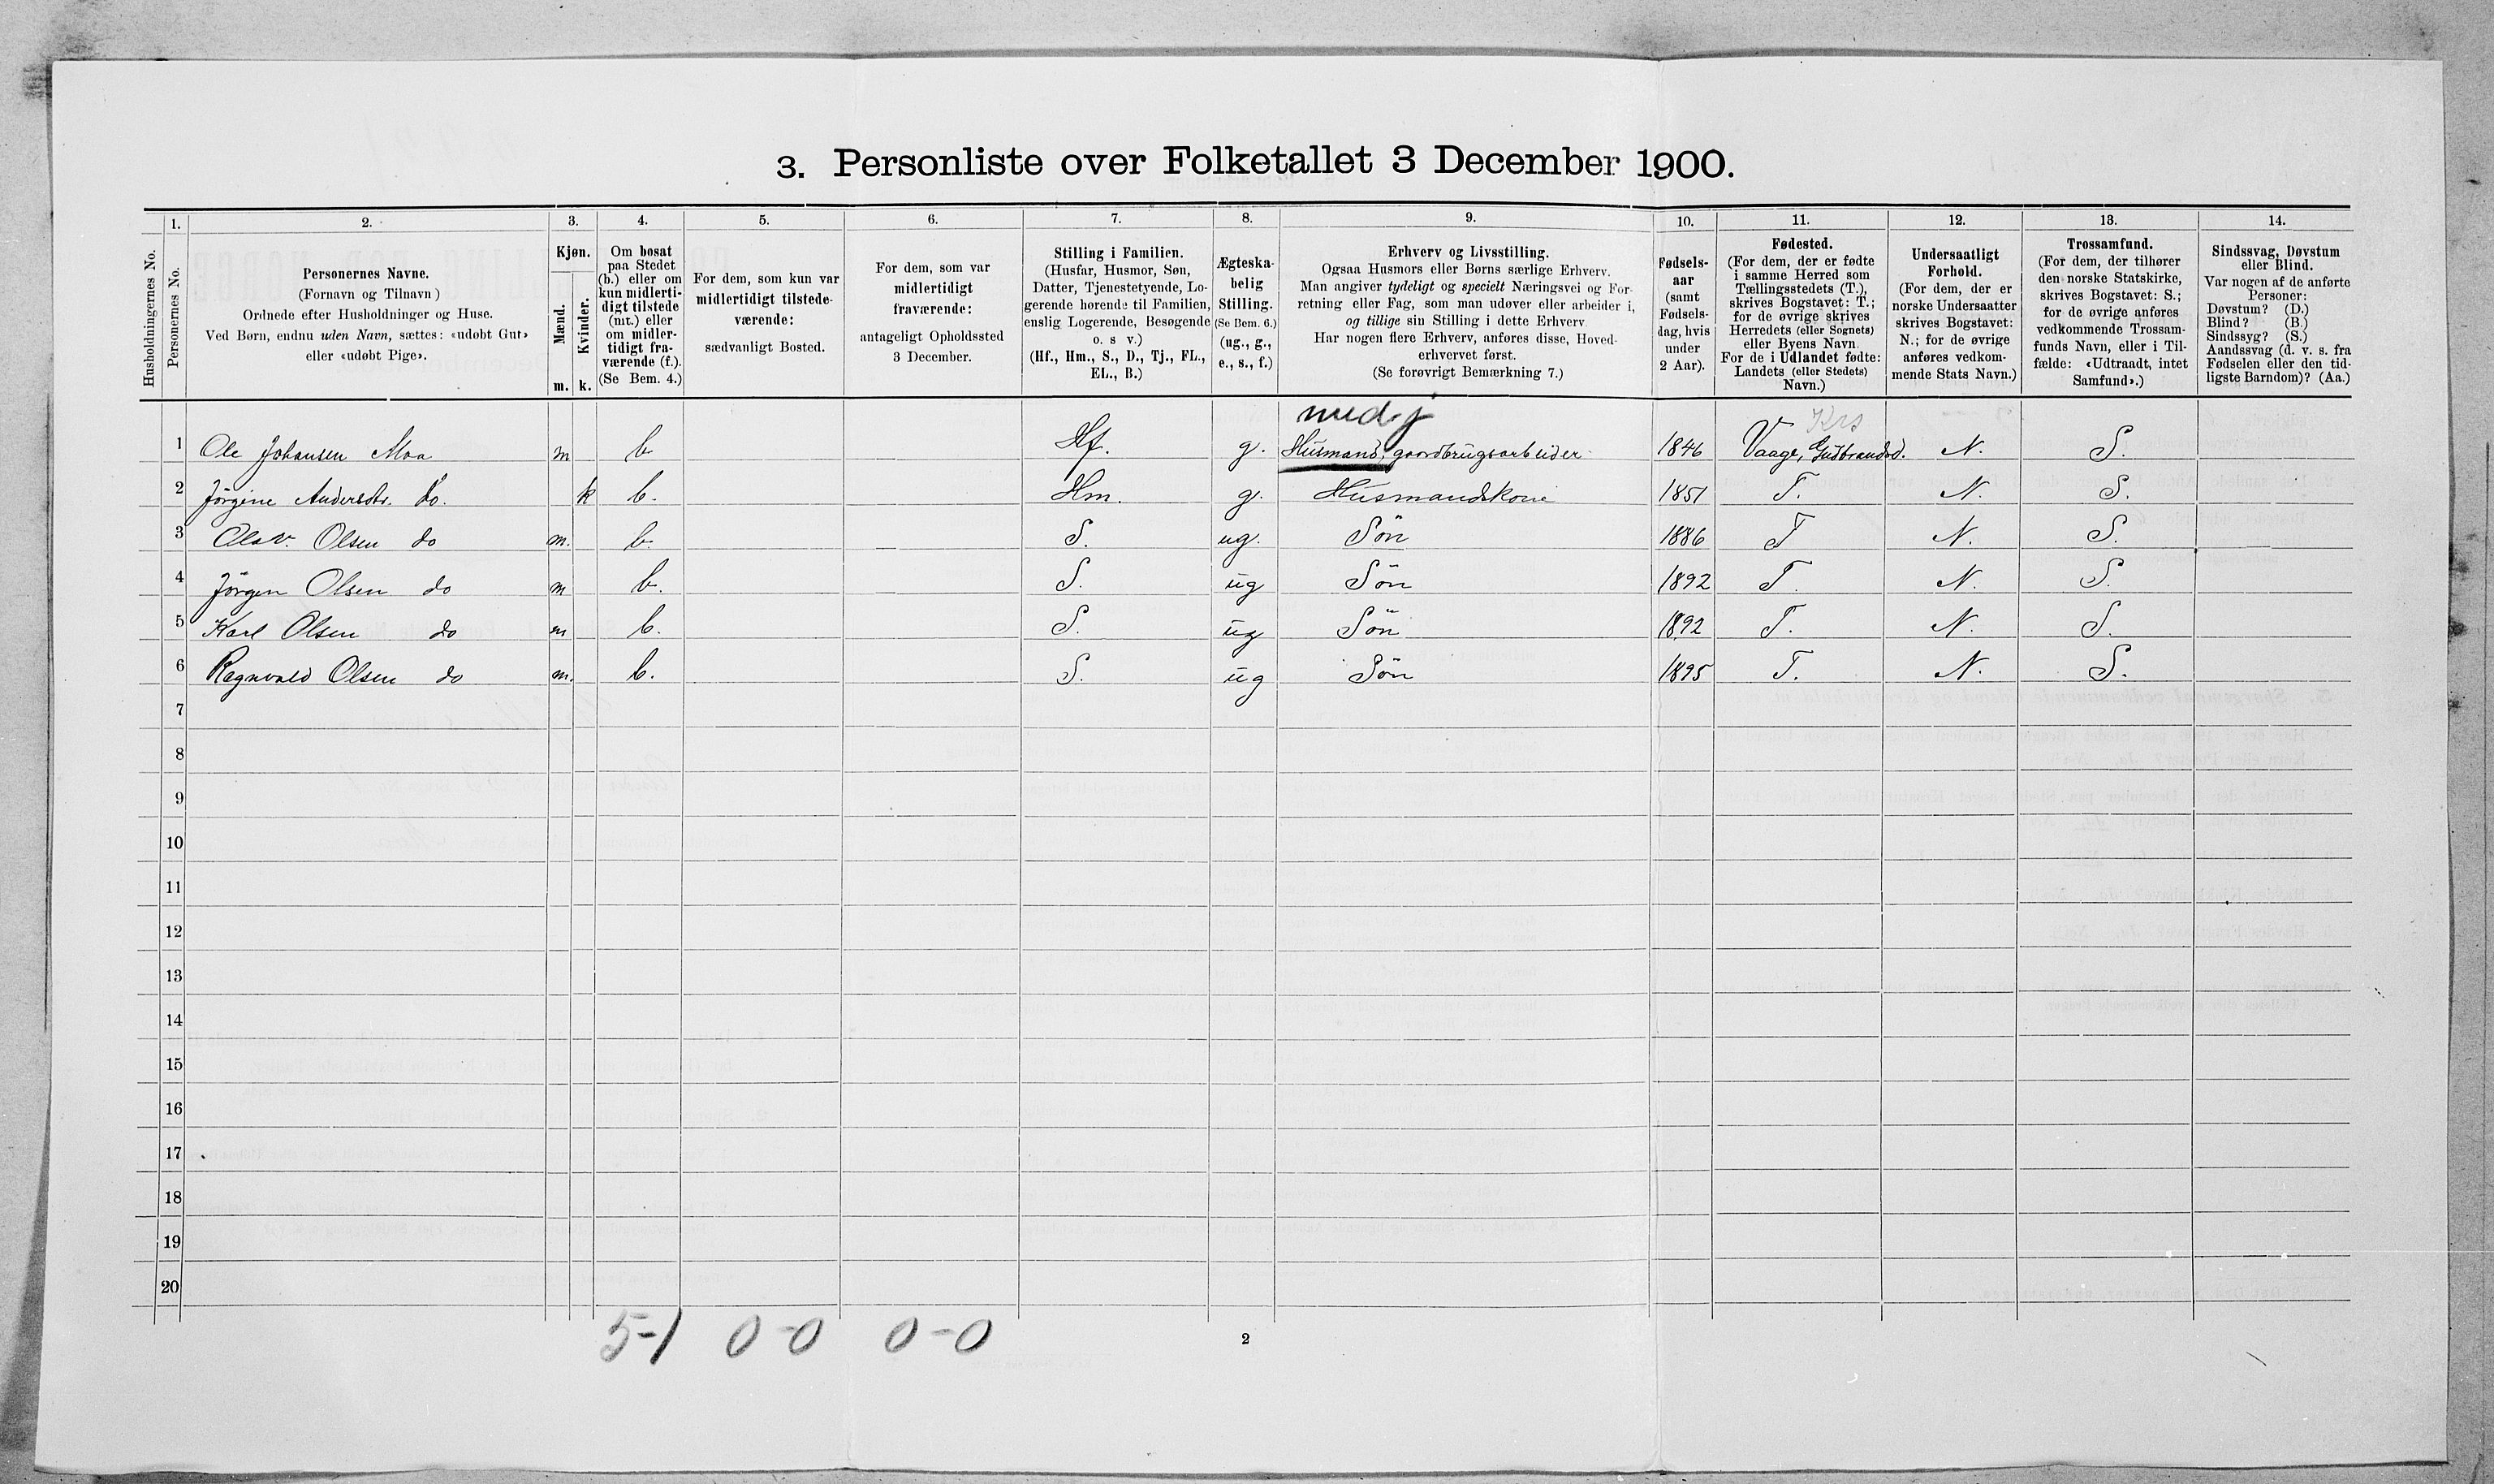 3. Personliste over Folketallet 3 December 1900.
Husholdningernes No.
1.
Personernes No.
2.
Personernes Navne.
(Fornavn og Tilnavn)
Ordnede efter Husholdninger og Huse.
Ved Børn, endnu uden Navn, sættes: «udøbt Gut»
eller «udøbt Pige».
3.
Kjøn.
Mænd.
Kvinder.
m. k.
4.
Om bosat
paa Stedet
(b.) eller om
kun midlerti-
digt tilstede
(mt.) eller
om midler-
tidigt fra-
værende (f.).
(Se Bem. 4.)
5.
For dem, som kun var
midlertidigt tilstede-
værende:
sædvanligt Bosted.
6.
For dem, som var
midlertidigt
fraværende:
antageligt Opholdssted
3 December.
7.
Stilling i Familien.
(Husfar, Husmor, Søn,
Datter, Tjenestetyende, Lo-
gerende hørende til Familien,
enslig Logerende, Besøgende
o. s v.)
(Hf., Hm., S., D., Tj., FL.,
EL., B.)
8.
Ægteska-
belig
Stilling.
(Se Bem. 6.)
(ug., g.,
e., s., f.)
9.
Erhverv og Livsstilling.
Ogsaa Husmors eller Børns særlige Erhverv.
Man angiver tydeligt og specielt Næringsvei og For-
retning eller Fag, som man udøver eller arbeider i,
og tillige sin Stilling i dette Erhverv
Har nogen flere Erhverv, anføres disse, Hoved-
erhvervet først.
(Se forøvrigt Bemærkning 7.)
10.
Fødsels-
aar
(samt
Fødsels-
dag, hvis
under
2 Aar).
11.
Fødested.
(For dem, der er fødte
i samme Herred som
Tællingsstedets (T.),
skrives Bogstavet: T.;
for de øvrige skrives
Herredets (eller Sognets)
eller Byens Navn.
For de i Udlandet fødte:
Landets (eller Stedets)
Navn.)
12.
Undersaatligt
Forhold.
(For dem, der er
norske Undersaatter
skrives Bogstavet:
N.; for de øvrige
anføres vedkom-
mende Stats Navn.)
13.
Trossamfund.
(For dem, der tilhører
den norske Statskirke,
skrives Bogstavet: S.;
for de øvrige anføres
vedkommende Trossam-
funds Navn, eller i Til-
fælde: «Udtraadt, intet
Samfund».)
14.
Sindssvag, Døvstum
eller Blind.
Var nogen af de anførte
Personer:
Døvstum? (D.)
Blind? (B.)
Sindssyg? (S.)
Aandssvag (d. v. s. fra
Fødselen eller den tid-
ligste Barndom)? (Aa.)
med j Krs
1 Ole Johansen Moa m b Hf. g. Husmand, gaardbrugsarbeider 1846 Vaage, Gudbrandsd. N. S.
2 Jörgine Andersdtr. do. k b. Hm. g. Husmandskone 1851 T. N. S.
3 Olav. Olsen do m. b. S. ug. Sön 1886 T N. S.
4 Jörgen Olsen do m b. S. ug Sön 1892 T. N. S.
5 Karl Olsen do m b. S. ug Sön 1892 T. N. S.
6 Ragnvald Olsen do m. b. S. ug Sön 1895 T. N. S.
7
8
9
10
11
12
13
14
15
16
17
18
19
20
5-1 0-0 0-0
2